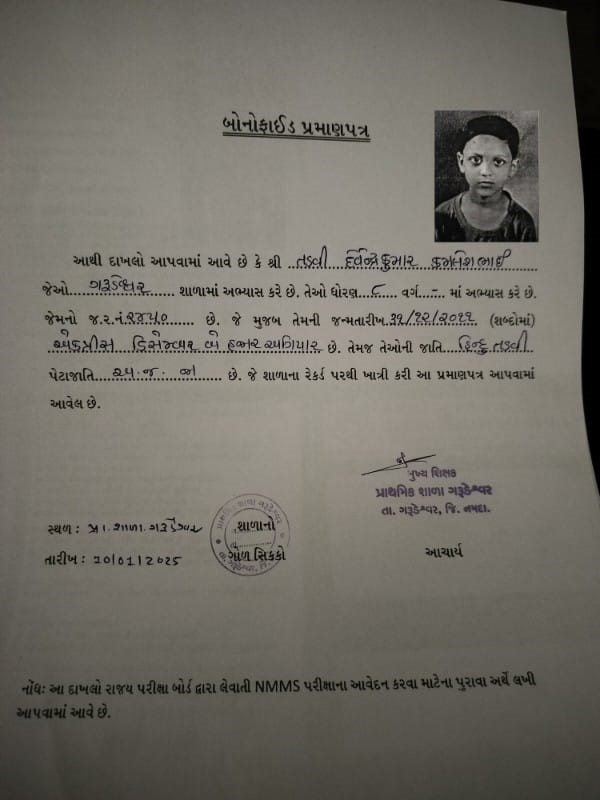 બોનોફાઈડ પ્રમાણપત્ર
આથી દાખલો આપવામાં આવે છે કે શ્રી ..તડવી દર્વેન્દ્રકુમાર કમલેશભાઈ
જેઓ ....ગરૂડેશ્વર........ શાળામાં અભ્યાસ કરે છે. તેઓ ધોરણ ..૮.... વર્ગ ..-.. માં અભ્યાસ કરે છે.
જેમનો જ.ર.નં.૨૪૫૦......... છે. જે મુજબ તેમની જન્મતારીખ.૩૧/૧૨/૨૦૧૧ (શબ્દોમાં)
એકત્રીસ ડિસેમ્બર બે હજાર અગિયાર છે. તેમજ તેઓની જાતિ ..હિન્દુ તડવી
પેટાજાતિ ....અ.જ.જા....... છે. જે શાળાના રેકર્ડ પરથી ખાત્રી કરી આ પ્રમાણપત્ર આપવામાં
આવેલ છે.
મુખ્ય શિક્ષક
પ્રાથમિક શાળા ગરૂડેશ્વર
તા. ગરૂડેશ્વર, જિ. નર્મદા.
આચાર્ય
સ્થળ : પ્રા. શાળા. ગરૂડેશ્વર
તારીખ : 20/01/2025
શાળાનો
ગોળ સિક્કો
પ્રાથમિક શાળા ગરૂડેશ્વર
તા. ગરૂડેશ્વર, જિ.
નોંધ: આ દાખલો રાજ્ય પરીક્ષા બોર્ડ દ્વારા લેવાતી NMMS પરીક્ષાના આવેદન કરવા માટેના પુરાવા અર્થે લખી
આપવામાં આવે છે.